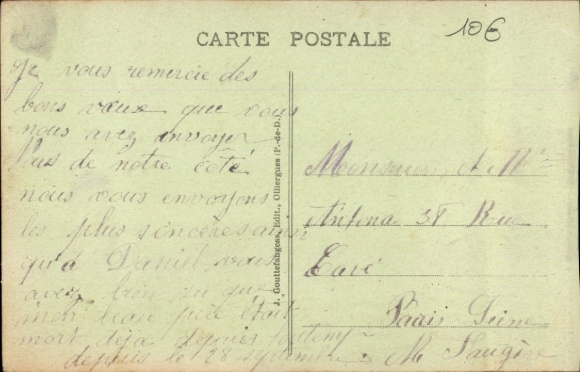 106
CARTE POSTALE
Je vous remercie des
bons vœux que vous
nous avez envoyer
de notre côté
nous vous envoyons
les plus sincères ainsi
qu'à Daniel vous
avez bien su que
mon beau père était
mort déjà depuis
depuis le 28 septembre
J. Gouttefangeas, Edit., Olliergues (P.-de-D.)
Monsieur et Mme
38 Rue
Paris Seine